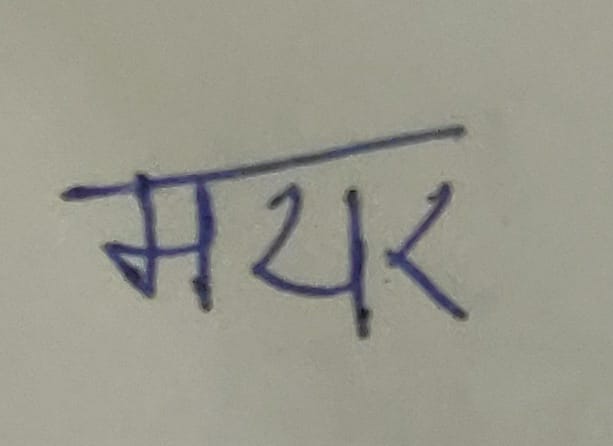 मयर